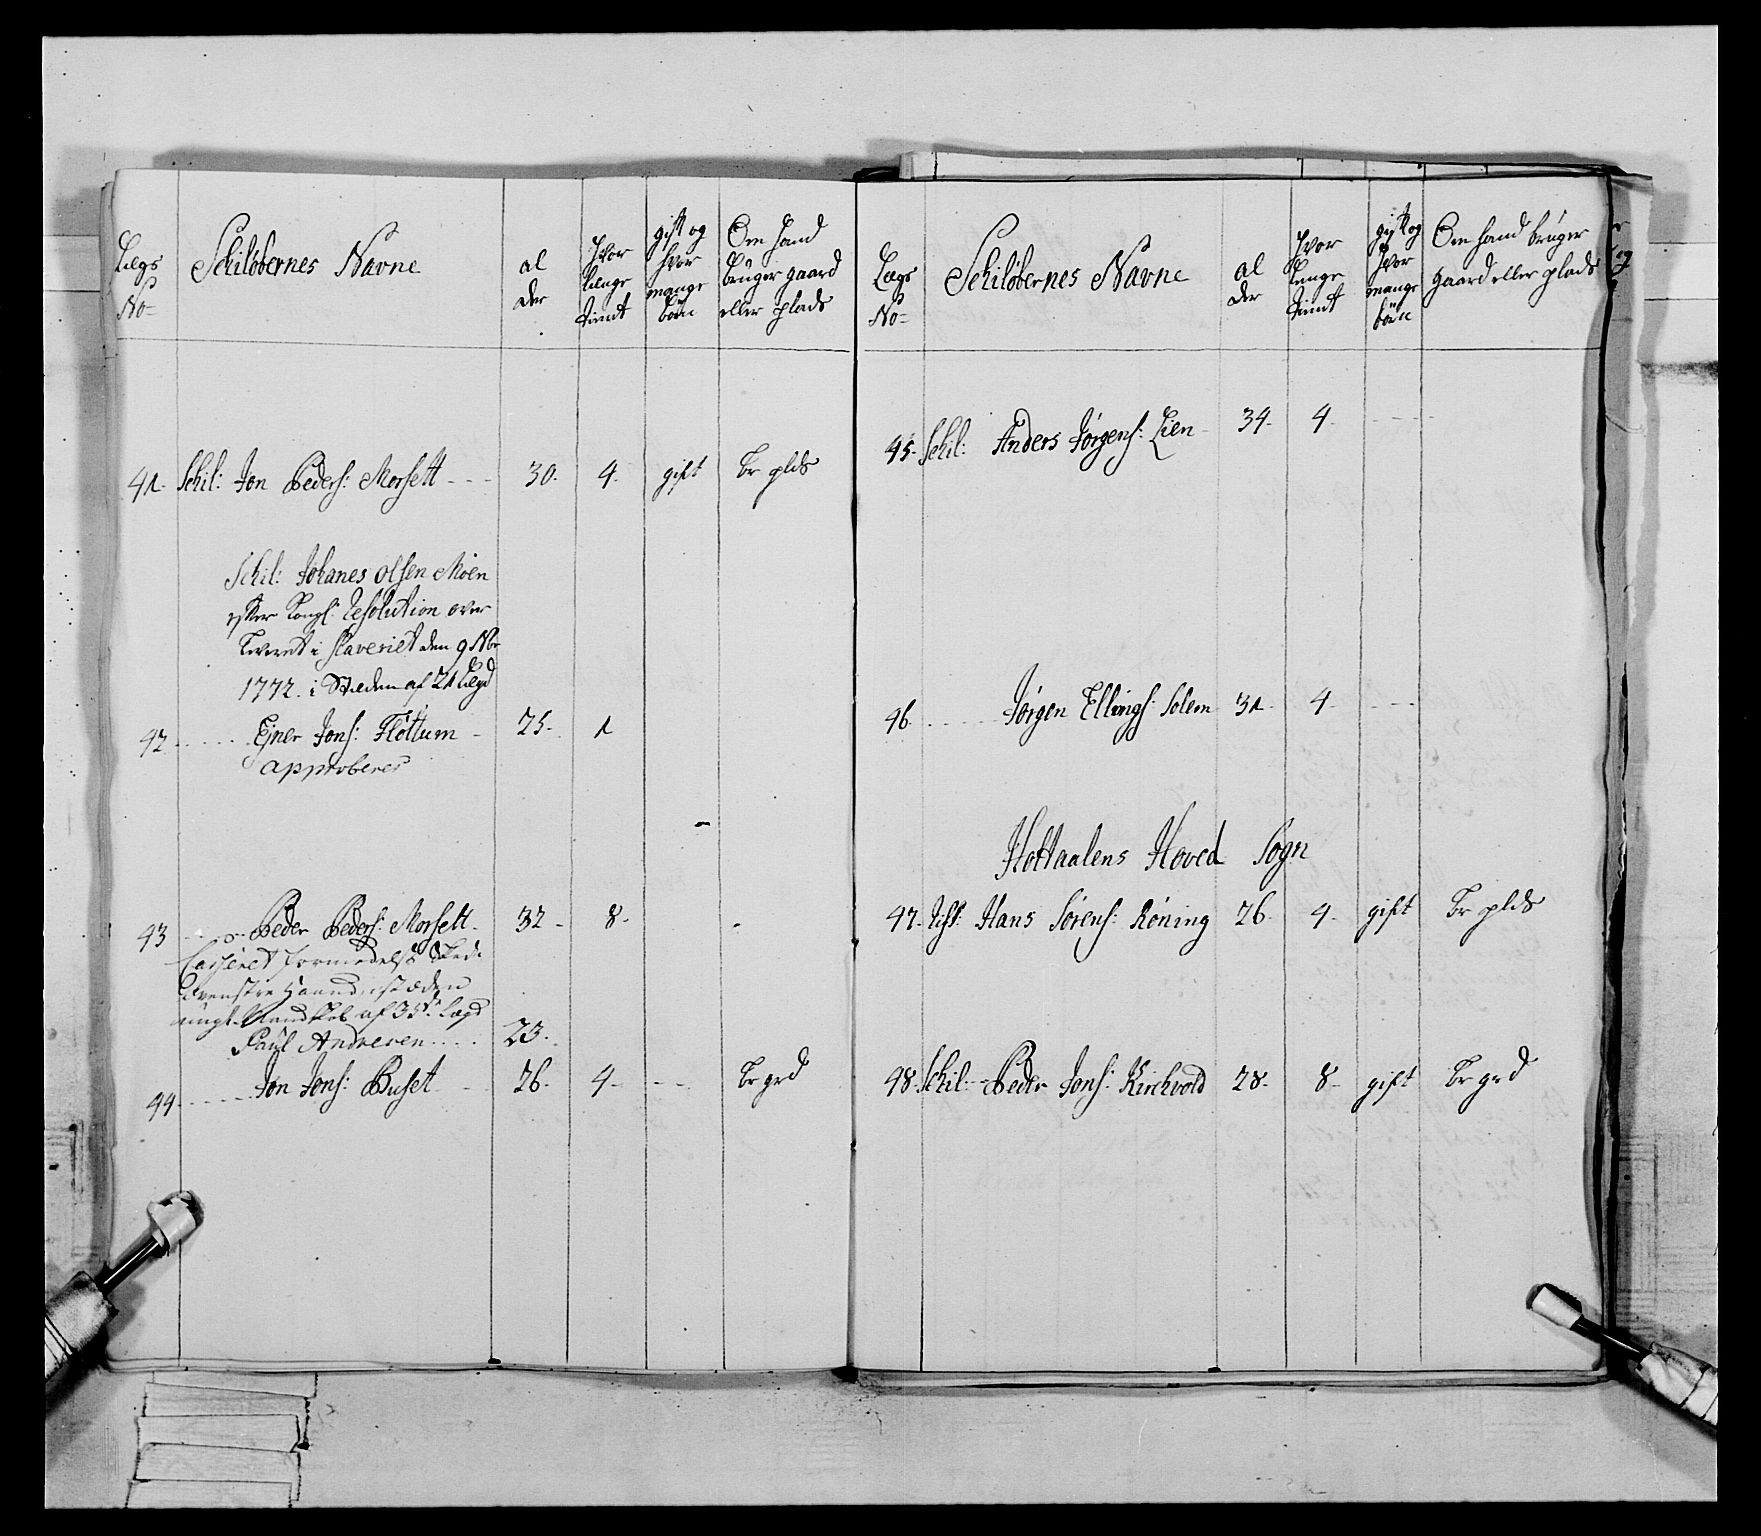 Lægs
No
Schilöbernes Navne
al
der
Hvor
længe
tient
gift og
hvor
mange
börn
Om hand
brüger gaard
eller plads
41. Schil: Jon Peders: Morsett 30. 4. gift br plds
Schil: Johanes Olsen Moen
efter Kongl: Resolution over
leveret i Slaveriet den 9 Nbr
1772. i Steden af 21 Lægd
42 Ejner Jons: Flöttum 25. 1
approberes
43 Peder Peders: Morsett. 32 8
Casseret formedelst
venstre Haand i stæden
ungt Mandskab af 35te Lægd
Paul Andresen 23.
44 Jon Jons: Buset 26. 4 br grd
Lægs
No
Schilöbernes Navne
al
der
Hvor
længe
tient
gift og
hvor
mange
börn
Om hand brüger
gaard eller plads
45. Schil: Anders Jörgens: Lien 34. 4
46 Jörgen Ellings: Solem 31. 4
Holtaalens Hoved Sogn
47. Hans Sörens: Röning 26. 4. gift br plds
48. Schil: Peder Jons: Kirchvold 28. 8 gift br grd